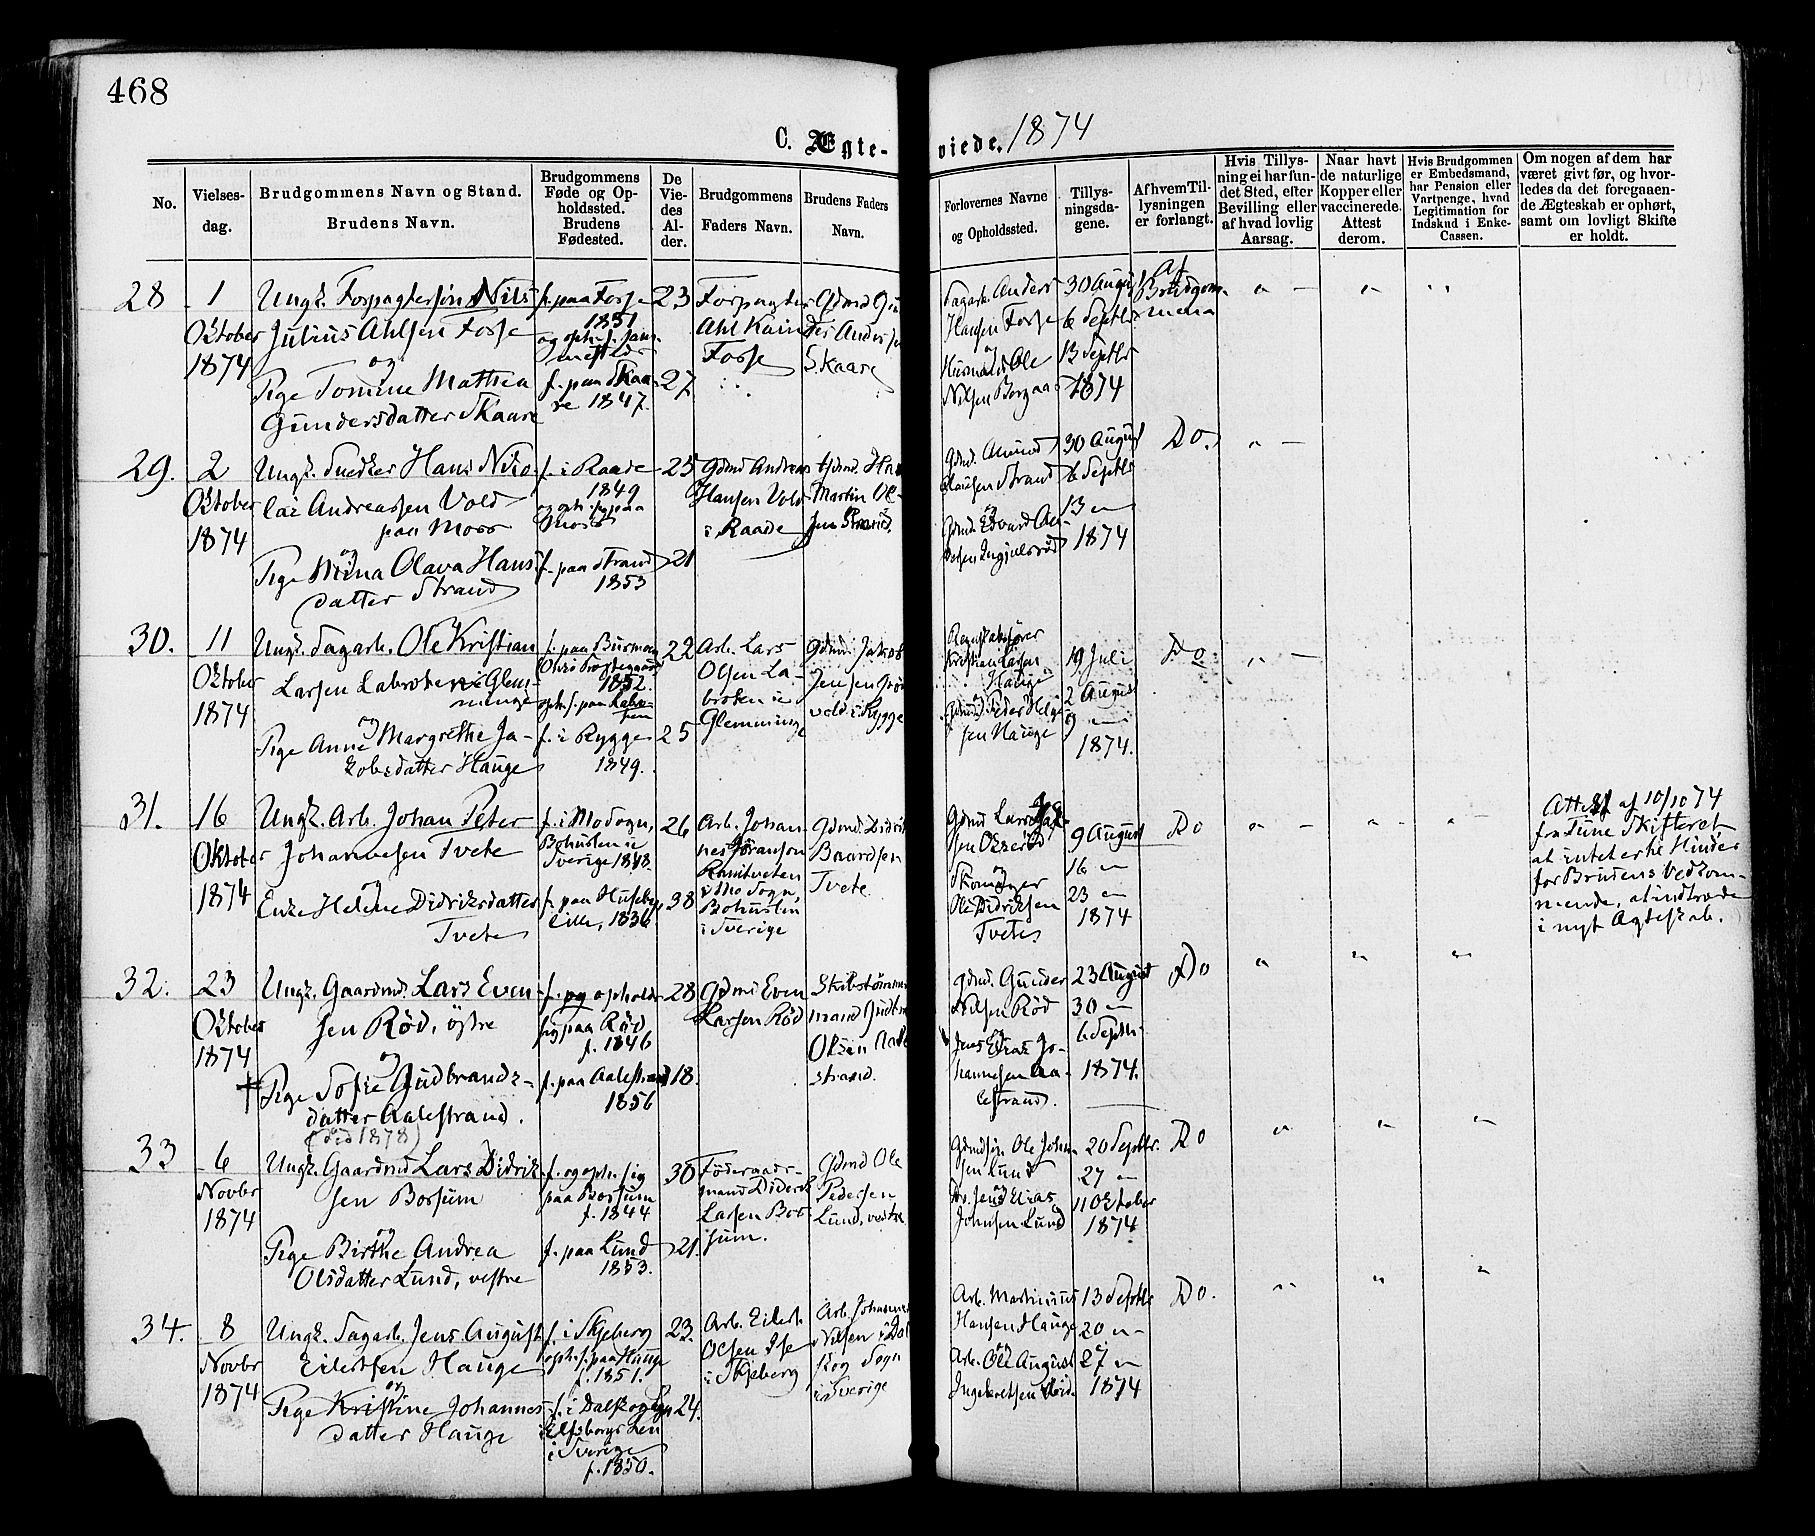 468
C. Ægte-
viede. 1874
No.
Vielses-
dag.
Brudgommens Navn og Stand.
Brudens Navn.
Brudgommens
Føde og Op-
holdssted.
Brudens
Fødested.
De
Vie-
des
Al-
der.
Brudgommens
Faders Navn.
Brudens Faders
Navn.
Forlovernes Navne
og Opholdssted.
Tillys-
ningsda-
gene.
Af hvem Til-
lysningen
er forlangt.
Hvis Tillys-
ning ei har fun-
det Sted, efter
Bevilling eller
af hvad lovlig
Aarsag.
Naar havt
de naturlige
Kopper eller
vaccinerede.
Attest
derom.
Hvis Brudgommen
er Embedsmand,
har Pension eller
Vartpenge, hvad
Legitimation for
Indskud i Enke-
Cassen.
Om nogen af dem har
været givt før, og hvor-
ledes da det foregaaen-
de Ægteskab er ophørt,
samt om lovligt Skifte
er holdt.
28
1
Oktober
1874
Ungk. Forpagtersøn Nils
Julius Ahlsen Fosse
og
Pige Tomine Mathea
Gundersdatter Skaare
f. paa Fosse
1851
f. paa Skaa-
re 1847.
23
27
Forpagter
Fosse
Gdmd Gun
der Anders
Skaare
Dagarb. Anders
Hansen Fosse
og
Husmand Ole
Nilsen
30 August
6 Septbr
13 Septbr
1874
Af
Brudgom-
mene
29.
2
Oktober
1874
Ungk. Snedker Hans Niko-
lai Andreassen Vold
paa Moss
og
Pige Mina Olava Hans
datter Strand
f. i Raade
1849
og oph. sig paa
Moss
f. paa Strand
1853
25
21
Gdmd Andreas
Hansen Vold
i Raade
Gdmd. Hans
Martin Ol-
sen Strand.
Gdmd. Amund
Clausen Strand
og
Gdmd. Edvard An-
30 August
6 Septbr
13 "
1874
Do.
30.
11
Oktober
1874
Ungk. Dagarb. Ole Kristian
Larsen Labraaten i Glem-
minge
og
Pige Anne Margrethe Ja-
kobsdatter Hauge
1852.
f. i Rygge
1849.
22
25
Arb. Lars
Olsen La-
broten i
Glemminge
Gdmd. Jakob
Jensen Grøn
vold i Rygge
Regnskabsfører
Kristian Larsen
Hauge
og
Gdmd. Peder Helge
sen Hauge
19 Juli
2 August
9 "
1874.
Do
31.
16
Oktober
1874
Ungk. Arb. Johan Peter
Johannesen Tvete
og
Enke Helene Didriksdatter
Tvete
f. i Mo Sogn,
Bohuslen i
Sverige 1848.
f. paa Huseby
lille, 1836
26
38
Arb. Johan-
nes Jöranson
i Mo Sogn
Bohuslen
i Sverige
Gdmd Didrik
Baardsen
Tvete.
og
Skomager
Ole Didriksen
Tvete
9 August
16 "
23 "
1874
Do
Attest af 10/10 74
fra Tune Skifteret
at intet er til Hinder
for Brudens Vedkom-
mende, at indtræde
i nyt Ægteskab.
32.
23
Oktober
1874
Ungk. Gaardmd. Lars Even-
sen Rød, østre
og
Pige Sofie Gudbrands-
datter Aalestrand.
(død 1878)
f. og opholdt
sig paa Rød
f. 1846
f. paa Aalestrand
1856
28
18.
Gdmd Even
Larsen Rød
mand Gudbr
Olsen Aale
strand.
Gdmd. Gunder
Nilsen Rød
og
Jens Elias Jo-
hannesen Aa-
lestrand.
23 August
30 "
6 Septbr.
1874.
Do
33
6
Novbr
1874
Ungk. Gaardmd Lars Didrik-
sen Borsum
og
Pige Birthe Andrea
Olsdatter Lund, vestre
f. og oph. sig
paa Borsum
f. 1844
f. paa Lund
1853.
30
21.
Føderaads-
mand Diderik
Larsen Bor
sum.
Gdmd Ole
Pedersen
Lund, vestre
Gdmdsøn Ole John-
sen Lund
og
Do. Jens Elias
Johnsen Lund
20 Septbr.
27 "
11 Oktober
1874
Do
34.
8
Novbr
1874
Ungk. Dagarb. Jens August
Eilertsen Hauge
og
Pige Kristine Johannes-
datter Hauge
f. i Skjeberg
oph. s. paa Hauge
f. 1851.
f. i Dalskog Sogn
i Elfsborgs Len
i Sverige
f. 1850.
23.
24.
Arb. Eilert
Olsen Ise
i Skjeberg
Arb. Johannes
Nilsen i Dal
skog Sogn
i Sverige
Arb. Martinius
Hansen Hauge
og
Arb. Ole August
Ingebretsen
13 Septbr
20 "
27 "
1874
Do.